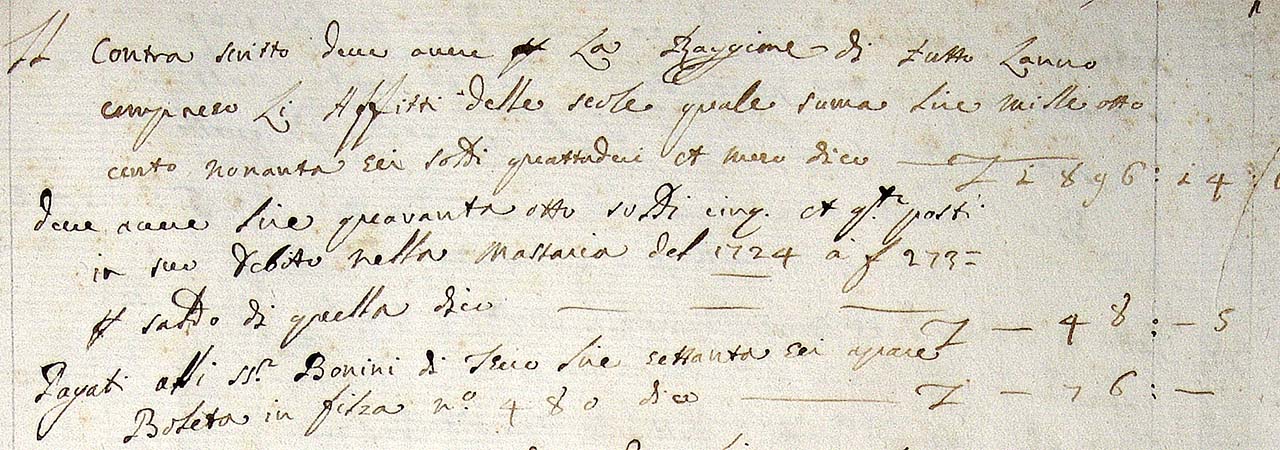 Il Contra scritto deve avere p La Raggione di tutto Lanno
compreso Li Affitti delle scole quale suma Lire mille otto
cento nonanta sei soldi quattordeci et mezo dico L 1896:14:
deve avere Lire quaranta otto soldi cinq. et posti
in suo Debito nella Massaria del 1724 a f 273=
p saldo di quella dico L - 48:-5
Pagati alli ss.ri Bonini di Lire settanta sei apare
Boleta in filza n.o 480 dico L - 76:-